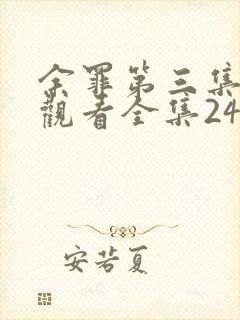 余罪第三集
觀看全集24
安若夏